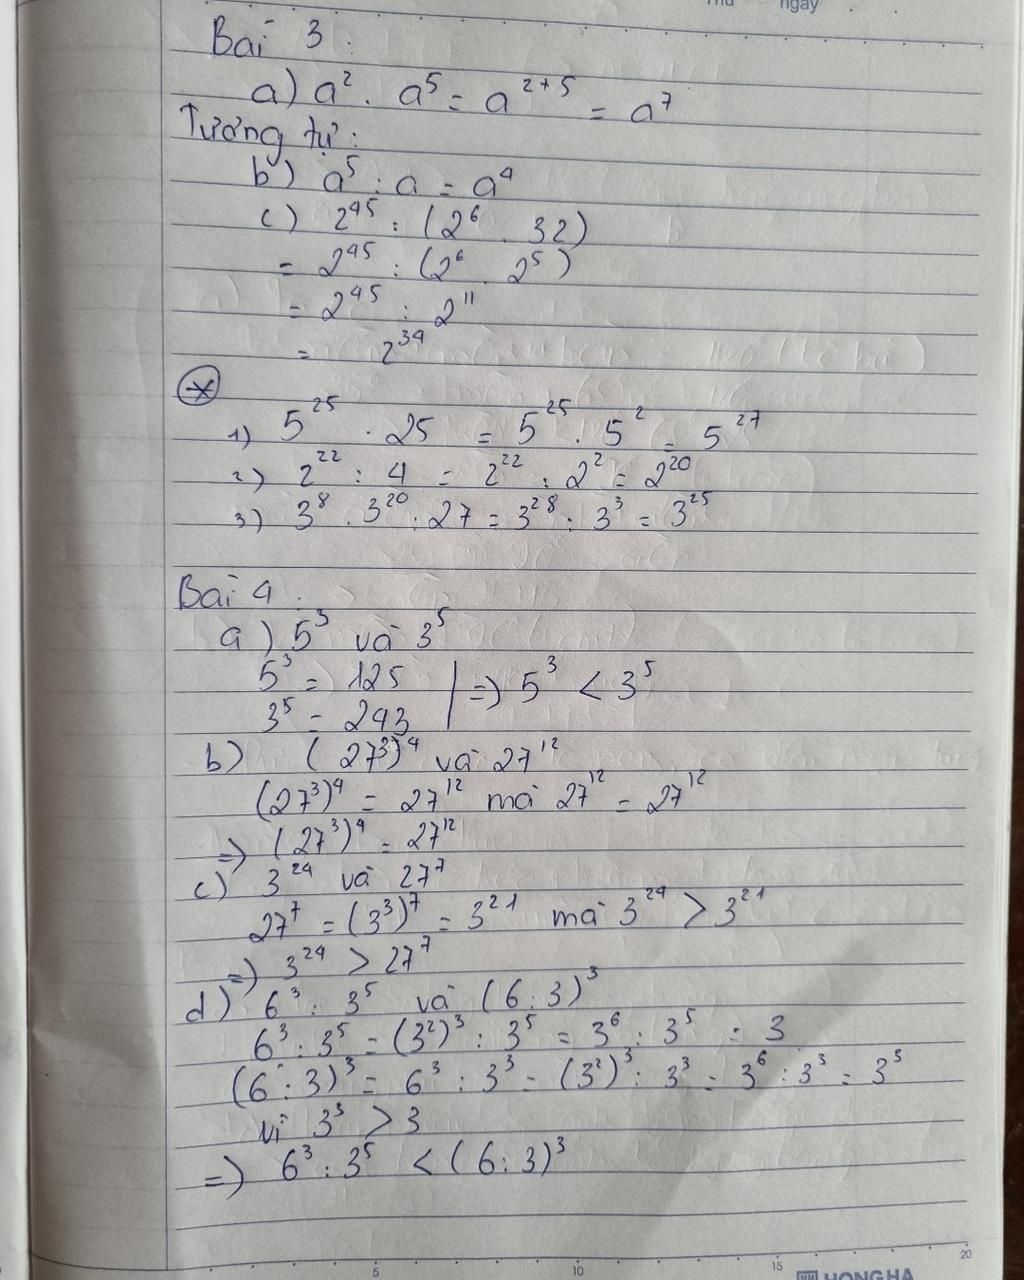 Thứ ngày
Bài 3:
a) a² . a⁵ = a²⁺⁵ = a⁷
Tương tự:
b) a⁵ : a = a⁴
c) 2⁴⁵ : (2⁶ . 32)
= 2⁴⁵ : (2⁶ . 2⁵)
= 2⁴⁵ : 2¹¹
= 2³⁴
*
1) 5²⁵ . 25 = 5²⁵ . 5² = 5²⁷
2) 2²² : 4 = 2²² : 2² = 2²⁰
3) 3⁸ . 3²⁰ : 27 = 3²⁸ : 3³ = 3²⁵
Bài 4:
a) 5³ và 3⁵
5³ = 125
3⁵ = 243 | => 5³ < 3⁵
b) (27³)⁴ và 27¹²
(27³)⁴ = 27¹² mà 27¹² = 27¹²
=> (27³)⁴ = 27¹²
c) 3²⁴ và 27⁷
27⁷ = (3³)⁷ = 3²¹ mà 3²⁴ > 3²¹
=> 3²⁴ > 27⁷
d) 6³ : 3⁵ và (6 : 3)³
6³ : 3⁵ = (3²)³ : 3⁵ = 3⁶ : 3⁵ = 3
(6 : 3)³ = 6³ : 3³ = (3²)³ : 3³ = 3⁶ : 3³ = 3³
Vì 3³ > 3
=> 6³ : 3⁵ < (6 : 3)³
5 10 15 20
HONG HA